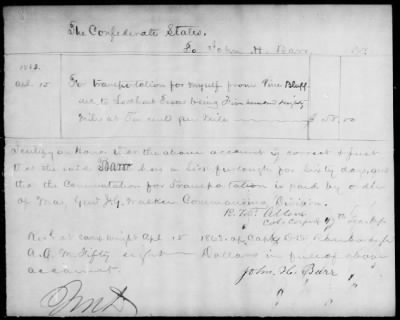 The Confederate States,
To John H. Barr, Dr.
1863
Apl. 15 For transportation for myself from Pine Bluff
Ark to Lockhart Texas being Five hundred & eighty
miles at Ten cents per mile $58.00
I certify on Honor that the above account is correct & just
that the said Barr has a Sick furlough for Sixty days, and
that the Commutation for Transportation is paid by order
of Maj Genl J.G. Walker Commanding Division.
R. Th. Allen
Col. Comdg 17th
Recd at Camp Wright Apl 15 1863 of Capt
A.Q.M. Fifty eight Dollars in full of above
account.
John H. Barr